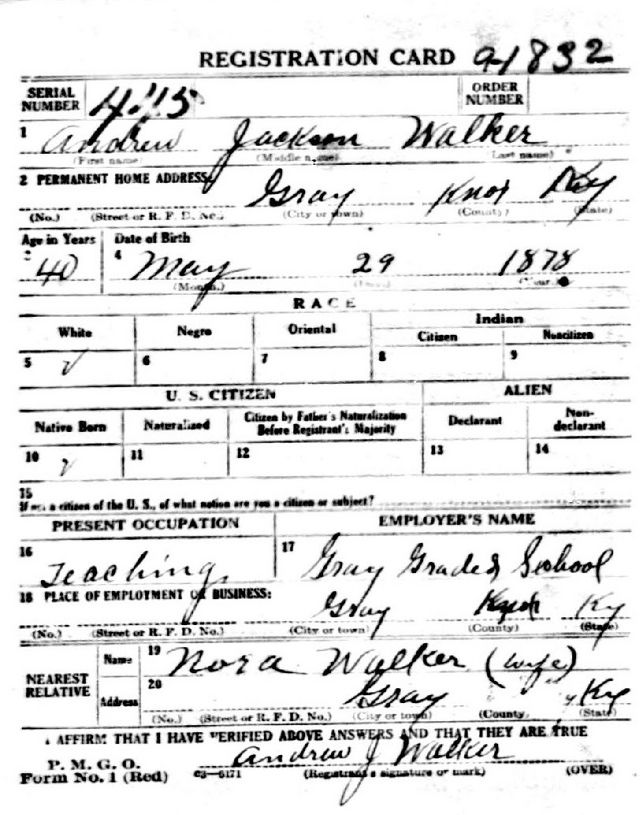 REGISTRATION CARD 91832
SERIAL NUMBER 4215 ORDER NUMBER
1 Andrew Jackson Walker
(First name) (Middle name) (Last name)
2 PERMANENT HOME ADDRESS: Gray Knox Ky
(No.) (Street or R. F. D. No.) (City or town) (County) (State)
Age in Years Date of Birth
3 40 4 May 29 1878
(Month.) (Day.) (Year.)
RACE
White Negro Oriental Indian
Citizen Noncitizen
5 ✓ 6 7 8 9
U. S. CITIZEN ALIEN
Native Born Naturalized Citizen by Father's Naturalization Before Registrant's Majority Declarant Non-declarant
10 ✓ 11 12 13 14
15
If not a citizen of the U. S., of what nation are you a citizen or subject?
PRESENT OCCUPATION EMPLOYER'S NAME
16 Teaching 17 Gray Graded School
18 PLACE OF EMPLOYMENT OR BUSINESS: Gray Knox Ky
(No.) (Street or R. F. D. No.) (City or town) (County) (State)
NEAREST RELATIVE Name 19 Nora Walker (wife)
Address 20 Gray Ky
(No.) (Street or R. F. D. No.) (City or town) (County) (State)
I AFFIRM THAT I HAVE VERIFIED ABOVE ANSWERS AND THAT THEY ARE TRUE
P. M. G. O.
Form No. 1 (Red) 03—6171 Andrew J Walker
(Registrant's signature or mark) (OVER)